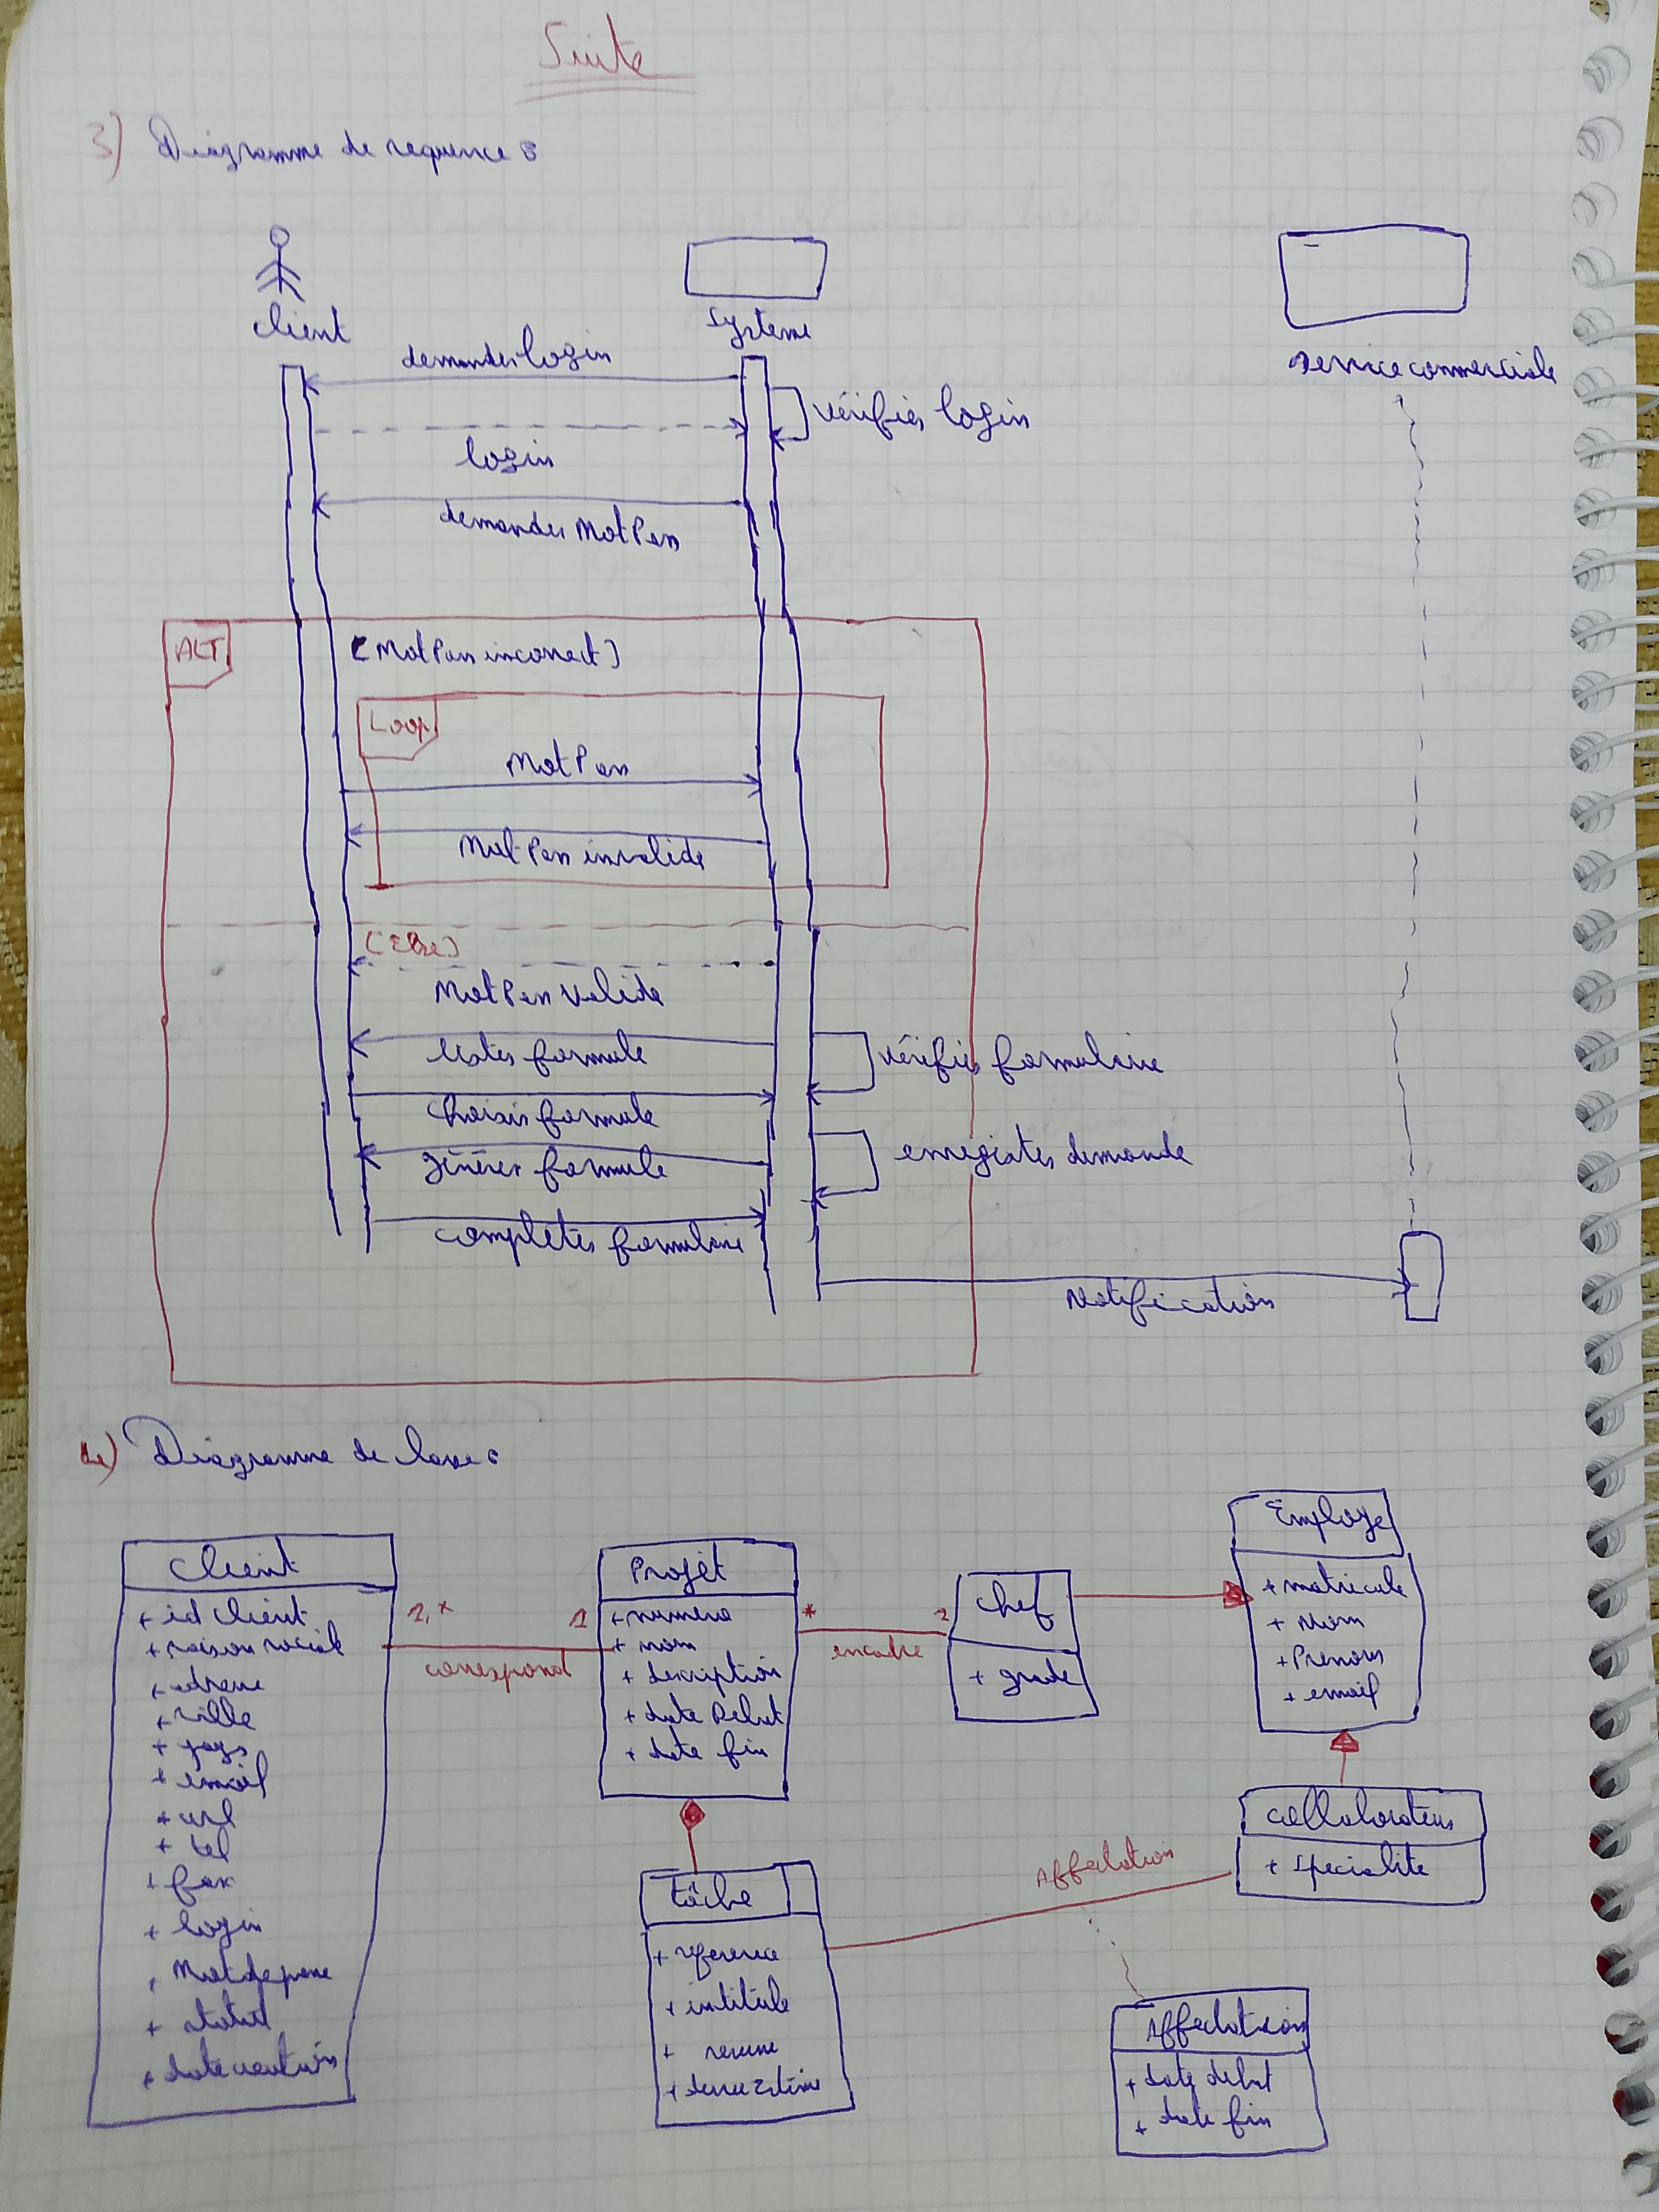 Suite
3) Diagramme de sequence :
client
Systeme
service commerciale
demander login
vérifier login
login
demander Mot Pass
ALT
[Mot Pass incorrect]
Loop
Mot Pass
Mot Pass invalide
[Else]
Mot Pass Valide
lister formule
vérifier formulaire
choisir formule
enregistrer demande
générer formule
completer formulaire
Notification
4) Diagramme de classe :
Client
+ id client
+ raison sociale
+ adresse
+ ville
+ pays
+ email
+ url
+ tel
+ fax
+ login
+ Mot de passe
+ statut
1,*
correspond
1
Projet
+ numero
+ nom
+ description
+ date Debut
+ date fin
*
encadre
Chef
+ grade
Employe
+ matricule
+ Nom
+ Prenom
+ email
collaborateur
+ specialite
Affectation
tâche
+ reference
+ intitule
+ resume
Affectation
+ date debut
+ date fin